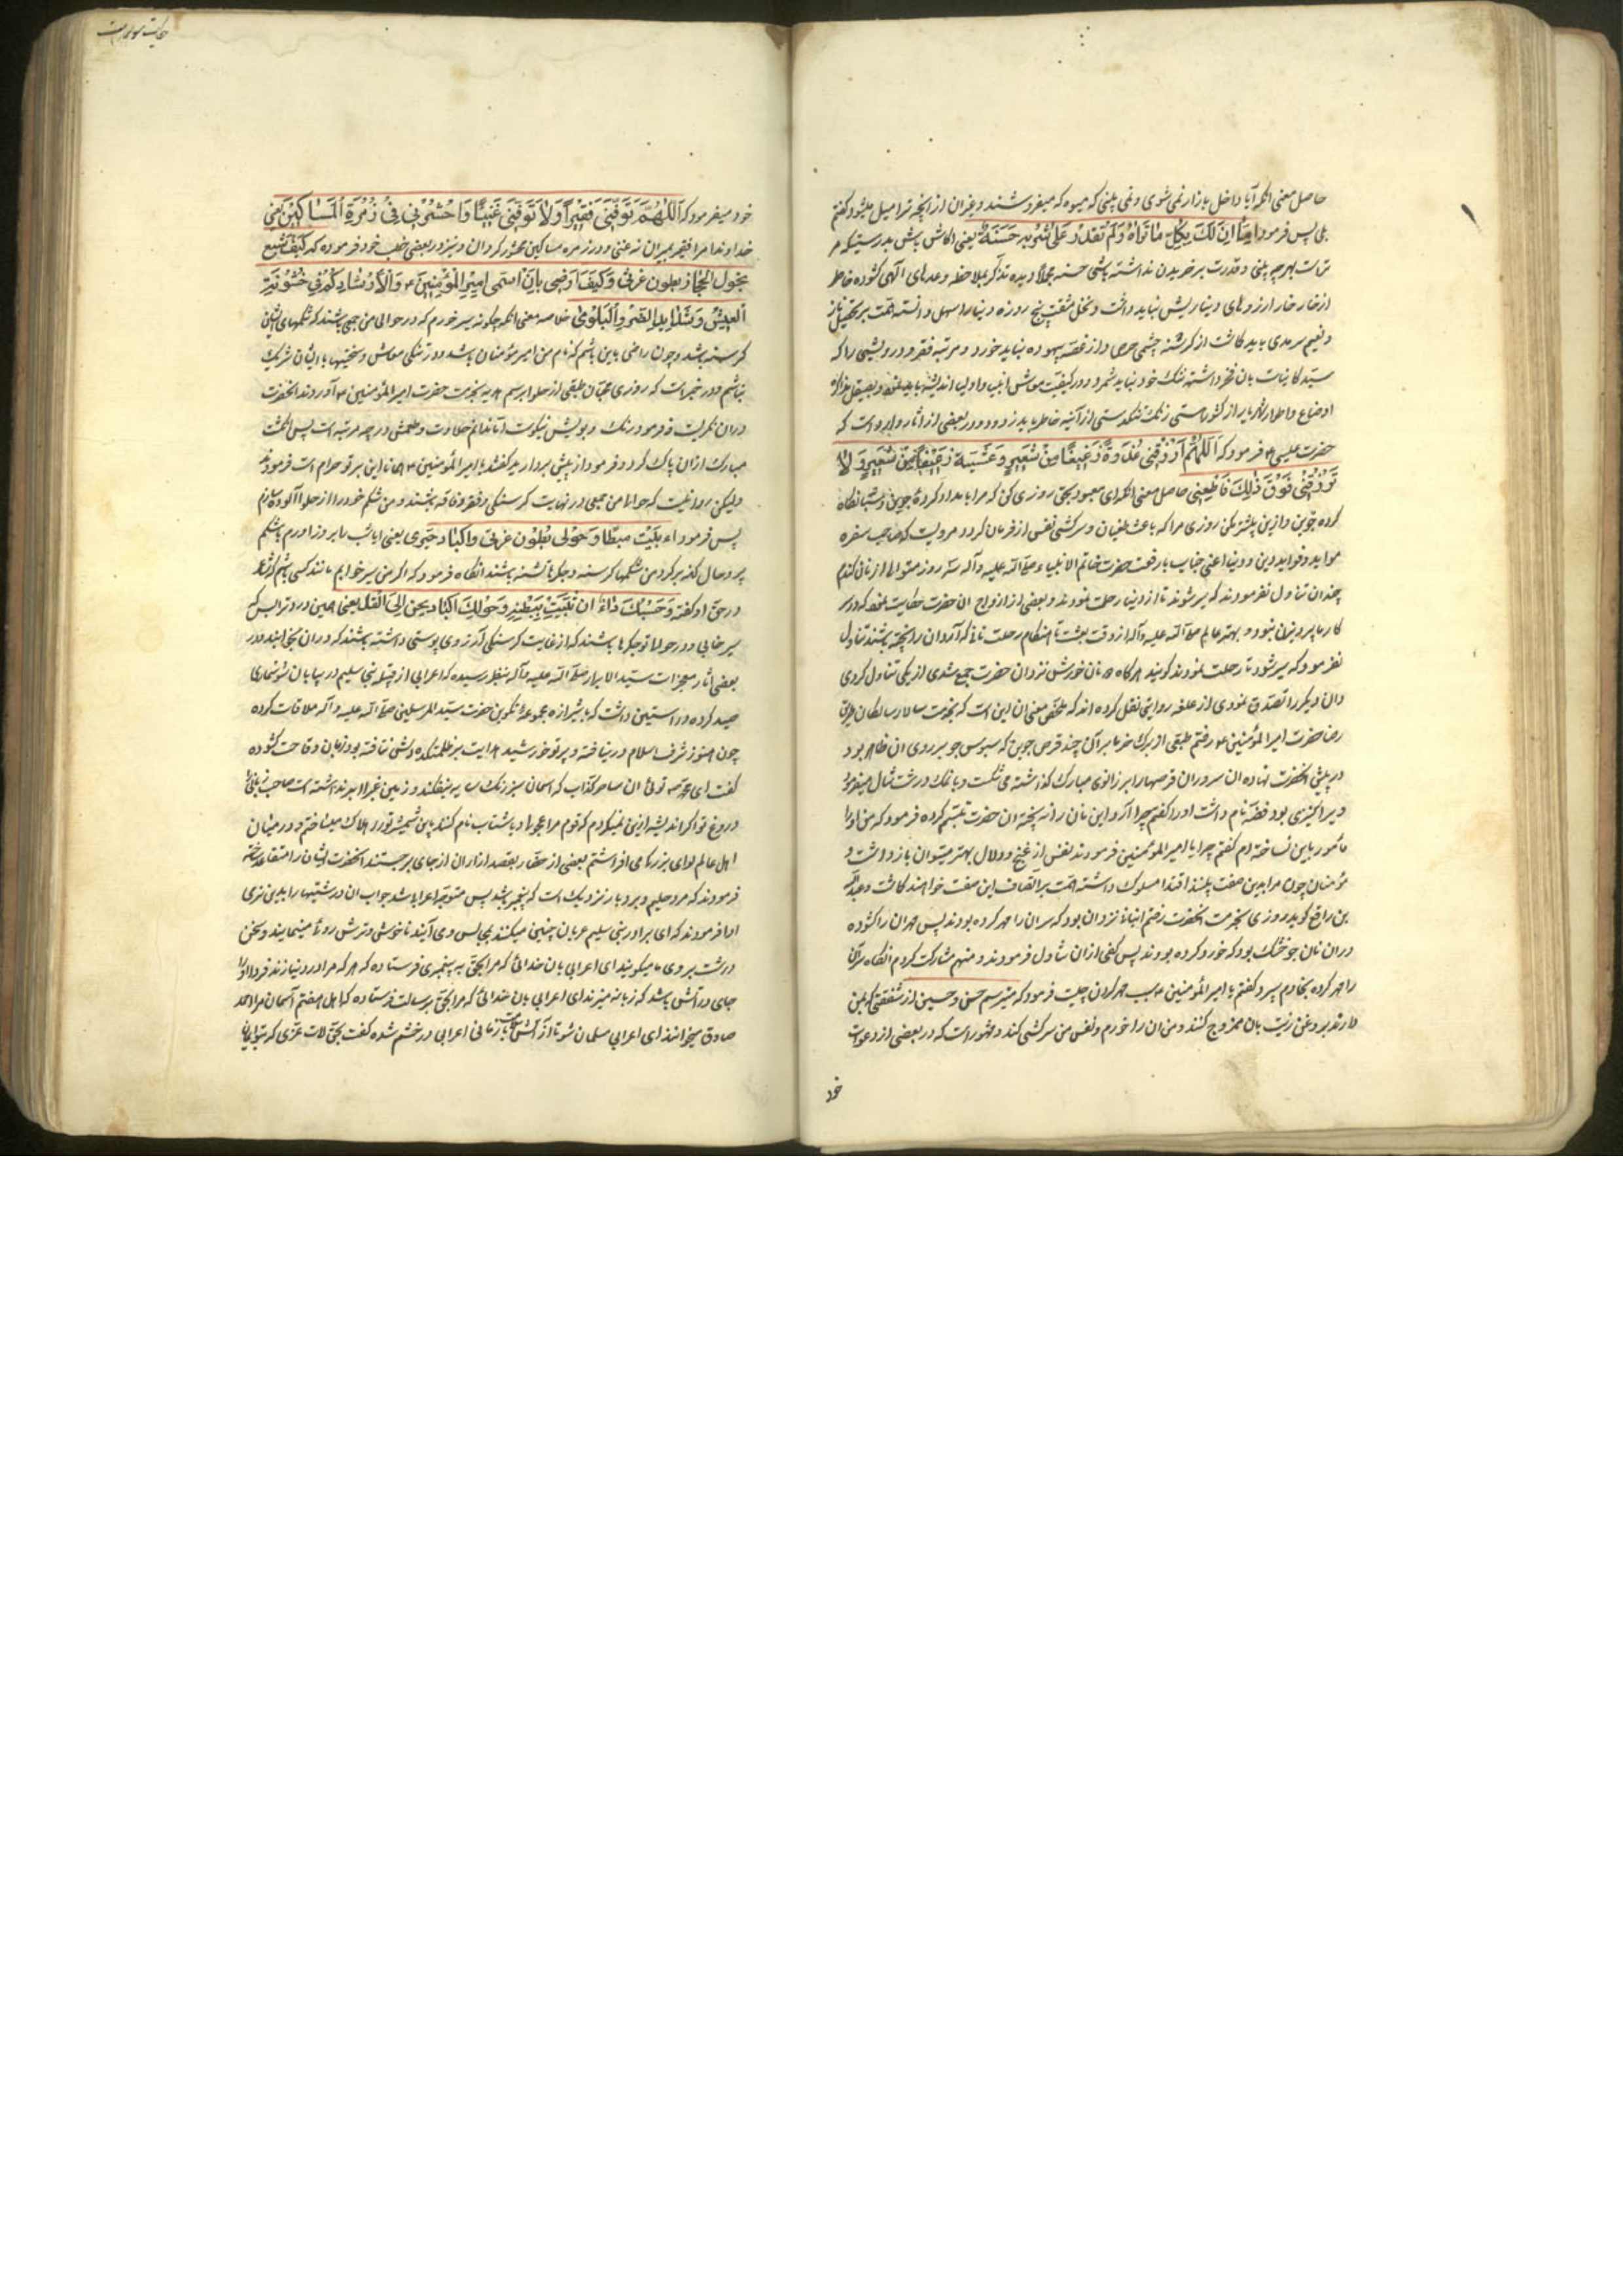 حاصل معنی انکه آیا داخل بازار نمی شوی و نمی بینی که میوه که میفروشند و غیر ان از انچه ترا میل میشود کفتم
بلی پس فرمود اما ان لک بکل ما تراه و لم تقدر علی شراءه حسنة یعنی اکاش باش بدرستیکه مر
تراست بهر چه بینی و قدرت بر خریدن نداشته باشی حسنه دیده تذکر بملاحظه وعدهای الهی کشوده خاطر
از خار خار ارزوهای دنیا ریش نباید داشت و تحمل مشقت پنج روزه دنیا را سهل دانسته همت بر تحصیل ناز
و نعیم سرمدی باید کماشت از کرسنه چشمی حرص و از غصه بیهوده نباید خورد و مرتبه فقر و درویشی را که
سید کاینات بان فخر داشته ننک خود نباید شمرد و در کیفیت معاش انبیا و اولیا اندیشه باید نمود و بصیقل
اوضاع و اطوار زنک تنکدستی از آینه خاطر باید زدود و در بعضی از اثار وارد است که
حضرت عیسی ع فرمود که اللهم ارزقنی غدوة رغیفا من شعیر و عشیة رغیفا من شعیر و لا
ترزقنی فوق ذلک فاطغینی حاصل معنی انکه ای معبود بحق روزی کن که مرا بامداد کردهٔ جوین و شبانکاه
کرده جوین و ازین بیشتر مکن روزی مرا که باعث طغیان و سرکشی نفس از فرمان کردد مرویست که صاحب سفره
موایدو فواید دین و دنیا اعنی جناب با رفعت حضرت خاتم الانبیاء صلی الله علیه و آله سه روز متوالی از نان کندم
چندان تناول نفرمودند که سیر شوند تا از دنیا رحلت نمودند و بعضی از ازواج ان حضرت حکایت نموده که در سر
کار ما پرویزن نبود و مهتر عالم صلی الله علیه و آله از وقت بعثت تا هنکام رحلت نانی که آرد ان را بیخته باشند تناول
نفرمود که سیر شود تا رحلت نمودند کویند هر کاه دو نان خورش نزد ان حضرت جمع شدی از یکی تناول کردی
و ان دیکر را تصدق نمودی از علقمه روایتی نقل کرده اند که ملخص معنی ان این است که بخدمت سالار سالکان طریق
رضا حضرت امیر المؤمنین ع رفتم طبقی از برک خرما بر آن چند قرص جوین که سبوس جو بر روی ان ظاهر بود
در پیش انحضرت نهاده ان سرور ان قرصها را بر زانوی مبارک کذاشته می شکست و با نمک درشت تناول میفرمود
و پیر کنیزی بود فضه نام داشت او را کفتم چرا آرد این نان را نه بیخته ان حضرت تبسم کرده فرمود که من او را
مأمور باین نساخته ام کفتم چرا یا امیر المؤمنین فرمودند نفس از غنج و دلال بهتر میتوان باز داشت و
مؤمنان چون مرا بدین صفت بینند اقتدا مسلوک داشته همت بر اتصاف این صفت خواهند کماشت و عبد الله
بن رافع کوید روزی بخدمت انحضرت رفتم انبانی نزد ان بود که سر ان را مهر کرده بودند پس مهر ان را کشوده
در ان نان جو خشک بود که خورد کرده بودند پس کفی از ان تناول فرمودند و منهم مشارکت کردم انکاه سر آن
را مهر کرده بخادم سپرد کفتم یا امیر المؤمنین سبب مهر کردن چیست فرمود که میترسم حسن و حسین از شفقتی که بمن
دارند بروغن زیت بان ممزوج کنند و من ان را خورم و نفس من سرکشی کند و مشهور است که در بعضی از دعوات
خود
خود میفرمود که اللهم توفنی فقیرا و لا توفنی غنیا و احشرنی فی زمرة المساکین یعنی
خداوندا مرا فقیر بمیران نه غنی و در زمره مساکین محشور کردان و نیز در بعضی خطب خود فرموده که کیف اشبع
بحول الحجاز بطون غرثی و کیف ارضی بان اسمی امیر المؤمنین و لا اشارکهم فی خشونة
العیش و شداید الضر و البلوی خلاصه معنی انکه چکونه سیر خورم که در حوالی من جمعی باشند که شکمهای ایشان
کرسنه باشد و چون راضی باین باشم که نام من امیر مؤمنان باشد و در تنکی معاش و سختیها با ایشان شریک
نباشم و در خبر است که روزی محبان طبقی از حلوا برسم هدیه بخدمت حضرت امیر المؤمنین ع آوردند انحضرت
در ان نکریست و فرمود رنک و بویش نیکوست اما ندانم حلاوت و طعمش در چه مرتبه است پس انکشت
مبارک از ان پاک کرد و فرمود از پیش بردارید کفتند یا امیر المؤمنین ع همانا این بر تو حرام است فرمودند
ولیکن روا نیست که جماعتی در نهایت کرسنکی و فقر و فاقه باشند و من شکم خود را از حلوا آلوده سازم
پس فرمود ءابیت مبطانا و حولی بطون غرثی و اکباد حری یعنی ایا شب را بروز اورم باشکم
پر و حال انکه بر کرد من شکمها کرسنه و جکرها تشنه باشند انکاه فرمود که اکر من سیر خوابم مانند کسی باشم که شاعر
در حق او کفته و حسبک داء ان تبیت ببطنة و حولک اکباد تحن الی القد یعنی همین درد ترا بس که
سیر خابی و در حوالی تو جکرها باشند که از غایت کرسنکی آرزوی پوستی داشته باشند که در ان بخایند و در
بعضی اثار معجزات سید الابرار صلی الله علیه و آله بنظر رسیده که اعرابی از قبیله بنی سلیم در بیابان سوسماری
صید کرده در استین داشت که با شیرازه مجموعهٔ تکوین حضرت سید المرسلین صلی الله علیه و آله ملاقات کرده
چون هنوز شرف اسلام درنیافته و پرتو خورشید هدایت بر ظلمتکده دلش نتافته بود زبان وقاحت کشوده
کفت ای محمد توئی ان ساحر کذاب که اسمان سبز رنک سایه نیفکنده و زمین غبرا برنداشته است صاحب زبانی
دروغ تو اکر اندیشه این نمیکردم که قوم مرا عجول و با شتاب نام کنند باین شمشیر ترا هلاک میساختم و در میان
اهل عالم لوای بزرکی می افراشتم بعضی از حضار بقصد ازار ان از جای برجستند انحضرت ایشان را متقاعد ساخته
فرمودند که مرد حلیم و بردبار نزدیک است که پیغمبر باشد پس متوجه اعرابی شد جواب ان درشتیها را بدین نرمی
ادا فرمودند که ای برادر بنی سلیم عربان چنین میکنند بمجالس وی آیند ناخوشی و ترش روئی مینمایند و سخن
درشت بروی ما میکویند ای اعرابی بان خدائی که مرا بحق به پیغمبری فرستاده که هر که مرا در دنیا زند فردا او را
جای در آتش باشد که زبانه میزند ای اعرابی بان خدائی که مرا بحق برسالت فرستاده که اهل هفتم آسمان مرا احمد
صادق میخوانند ای اعرابی مسلمان شو تا از آتش نجات یابی اعرابی در خشم شده کفت بحق لات عزی که بتو ایمان